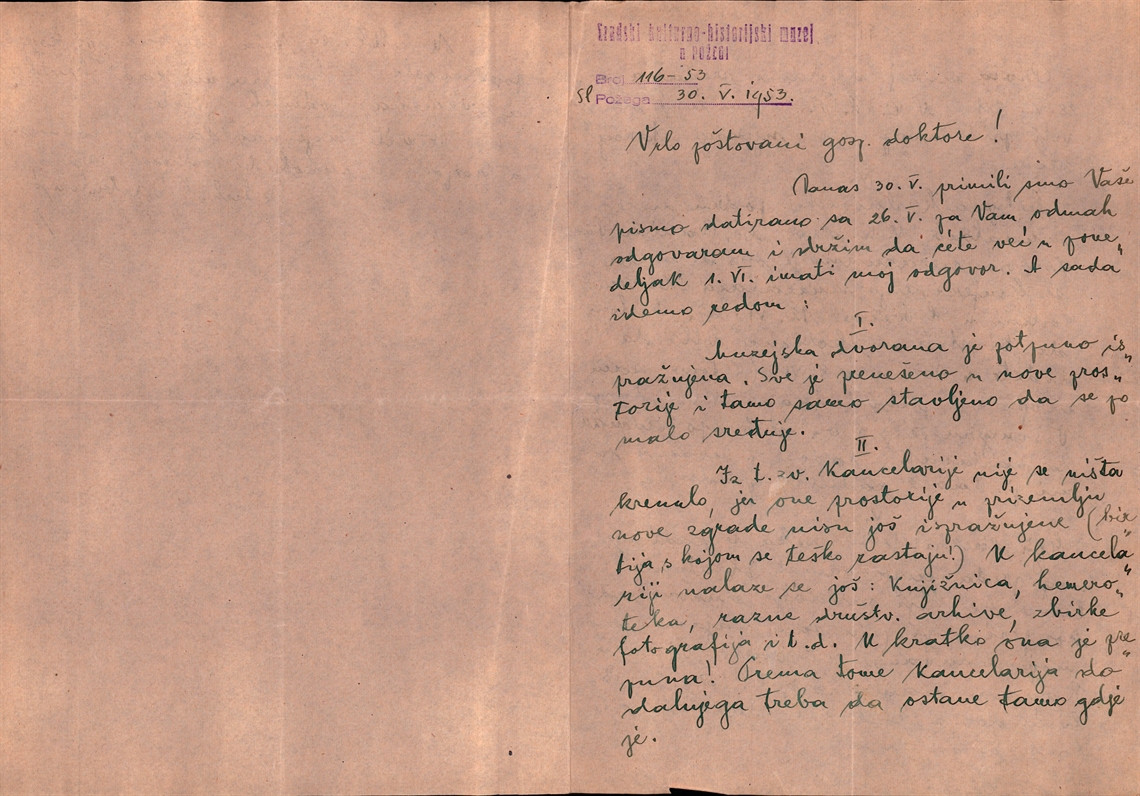 Gradski kulturno-historijski muzej
u POŽEGI
Broj 116-53
Sl Požega 30. V. 1953.
Vrlo poštovani gosp. doktore!
Danas 30. V. primili smo Vaše
pismo datirano sa 26. V. pa Vam odmah
odgovaram i držim da ćete već u pone„
deljak 1. VI. imati moj odgovor. A sada
idemo redom :
I.
Muzejska dvorana je potpuno is„
pražnjena. Sve je prenešeno u nove pros„
torije i tamo samo stavljeno da se po
malo sređuje.
II.
Iz t. zv. Kancelarije nije se ništa
krenulo, jer one prostorije u prizemlju
nove zgrade nisu još ispražnjene (bir„
tija s kojom se teško rastaju!) U kancela„
riji nalaze se još : Knjižnica, hemero„
teka, razne društv. arhive, zbirke
fotografija i t. d. U kratko ona je pre„
puna! Prema tome Kancelarija do
daljnjega treba da ostane tamo gdje
je.